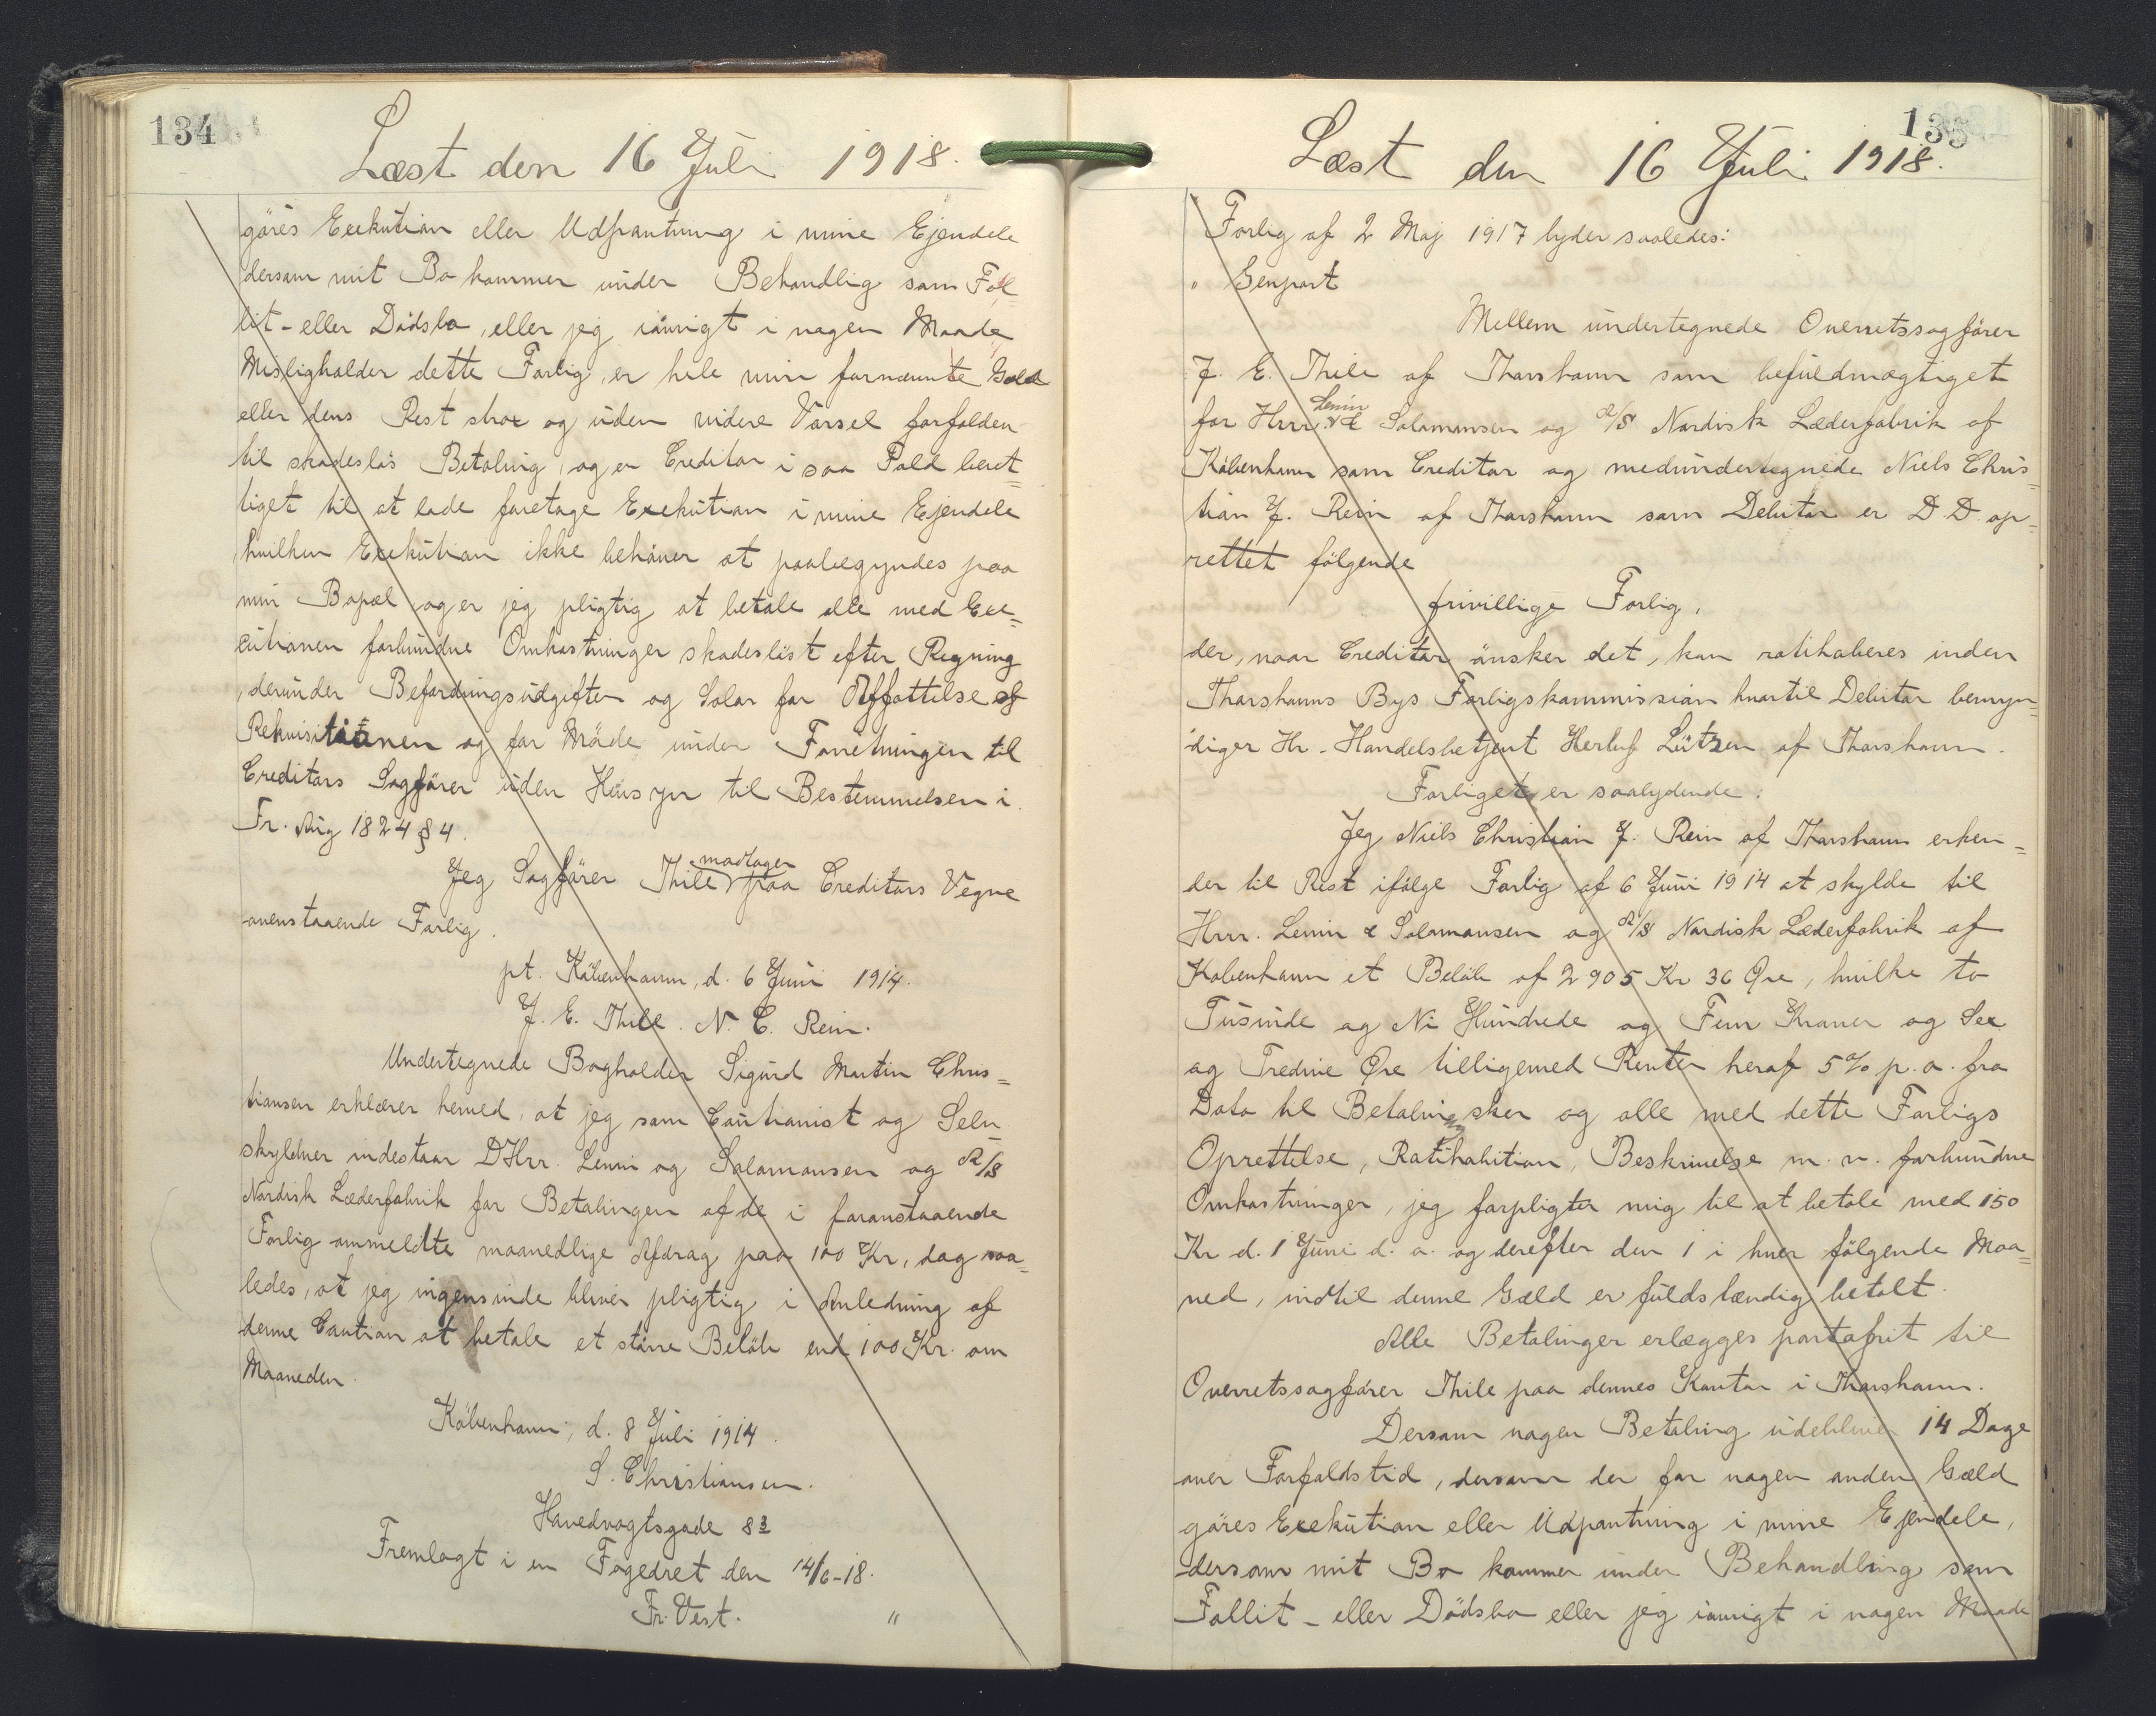 134
Læst den 16 Juli 1918.
göres Exekution eller Udpantning i mine Ejendele
dersom mit Bo kommer under Behandlig som Fal
lit - eller Dödsbo, eller jeg iövrigt i nogen Maade
Misligholder dette Forlig, er hele min fornævnte Gæld
eller dens Rest strax og uden videre Varsel forfalden
til skadeslös Betaling, og er Creditor i saa Fald beret=
tiget til at lade foretage Exekution i mine Ejendele
, hvilken Exekution ikke behöver at paabegyndes paa
min Bopæl, og er jeg pligtig at betale alle med Exe=
cutionen forbundne Omkostninger skadeslöst efter Regning
, derunder Befordringsudgifter og Salær for Affattelse af
Rekvisitionen og for Möde under Forretningen til
Creditors Sagförer uden Hensyn til Bestemmelsen i
Fr. Aug 1824 § 4.
Jeg Sagförer Thile modtager paa Creditors Vegne
ovenstaaende Forlig.
pt. Köbenhavn, d. 6 Juni 1914.
J. E. Thile. N. C. Rein.
Undertegnede Bogholder Sigurd Martin Chris=
tiansen erklærer herved, at jeg som Cautionist og Selv
skyldner indestaar D'Hrr. Levin og Salomonsen og A/S
Nordisk Læderfabrik for Betalingen af de i foranstaaende
Forlig ommeldte maanedlige Afdrag paa 100 Kr, dog saa=
ledes, at jeg ingensinde bliver pligtig i Anledning af
denne Caution at betale et större Belöb end 100 Kr. om
Maaneden.
Köbenhavn, d. 8 Juli 1914.
S. Christiansen.
Havedvagtsgade 8 3
Fremlagt i en Fogedret den 14/6-18.
Fr. Vest. "
135
Læst den 16 Juli 1918.
Forlig af 2 Maj 1917 lyder saaledes:
" Genpart
Mellem undertegnede Overretssagförer
J. E. Thile af Thorshavn som befuldmægtiget
for Hrrr. Levin & Salomonsen og A/S Nordisk Læderfabrik af
Köbenhavn som Creditor og medundertegnede Niels Chris=
tian J. Rein af Thorshavn som Debitor er D. D. op=
rettet fölgende
frivillige Forlig,
der, naar Creditor önsker det, kan ratihaberes inden
Thorshavns Bys Forligskommission hvortil Debitor bemyn=
diger Hr. Handelsbetjent Herluf Lützen af Thorshavn.
Forliget er saalydende:
Jeg Niels Christian J. Rein af Thorshavn erken=
der til Rest ifölge Forlig af 6 Juni 1914 at skylde til
Hrrr. Levin & Salomonsen og A/S Nordisk Læderfabrik af
Kobenhavn et Belöb af 2905 Kr 36 Øre, hvilke to
Tusinde og Ni Hundrede og Fem Kroner og Sex
og Tredive Øre tilligemed Renter heraf 5% p. a. fra
Dato til Betaling sker og alle med dette Forligs
Oprettelse, Ratihabition, Beskrivelse m. v. forbundne
Omkostninger, jeg forpligter mig til at betale med 150
Kr d. 1 Juni d. a. og derefter den 1 i hver fölgende Maa=
ned, indtil denne Gæld er fuldstændig betalt.
Alle Betalinger erlægges portofrit til
Overretssagförer Thile paa dennes Kontor i Thorshavn.
Dersom nogen Betaling udebliver 14 Dage
over Forfaldstid, dersom der for nogen anden Gæld
göres Exekution eller Udpantning i mine Ejendele,
dersom mit Bo kommer under Behandling som
Fallit - eller Dödsbo eller jeg iövrigt i nogen Maade